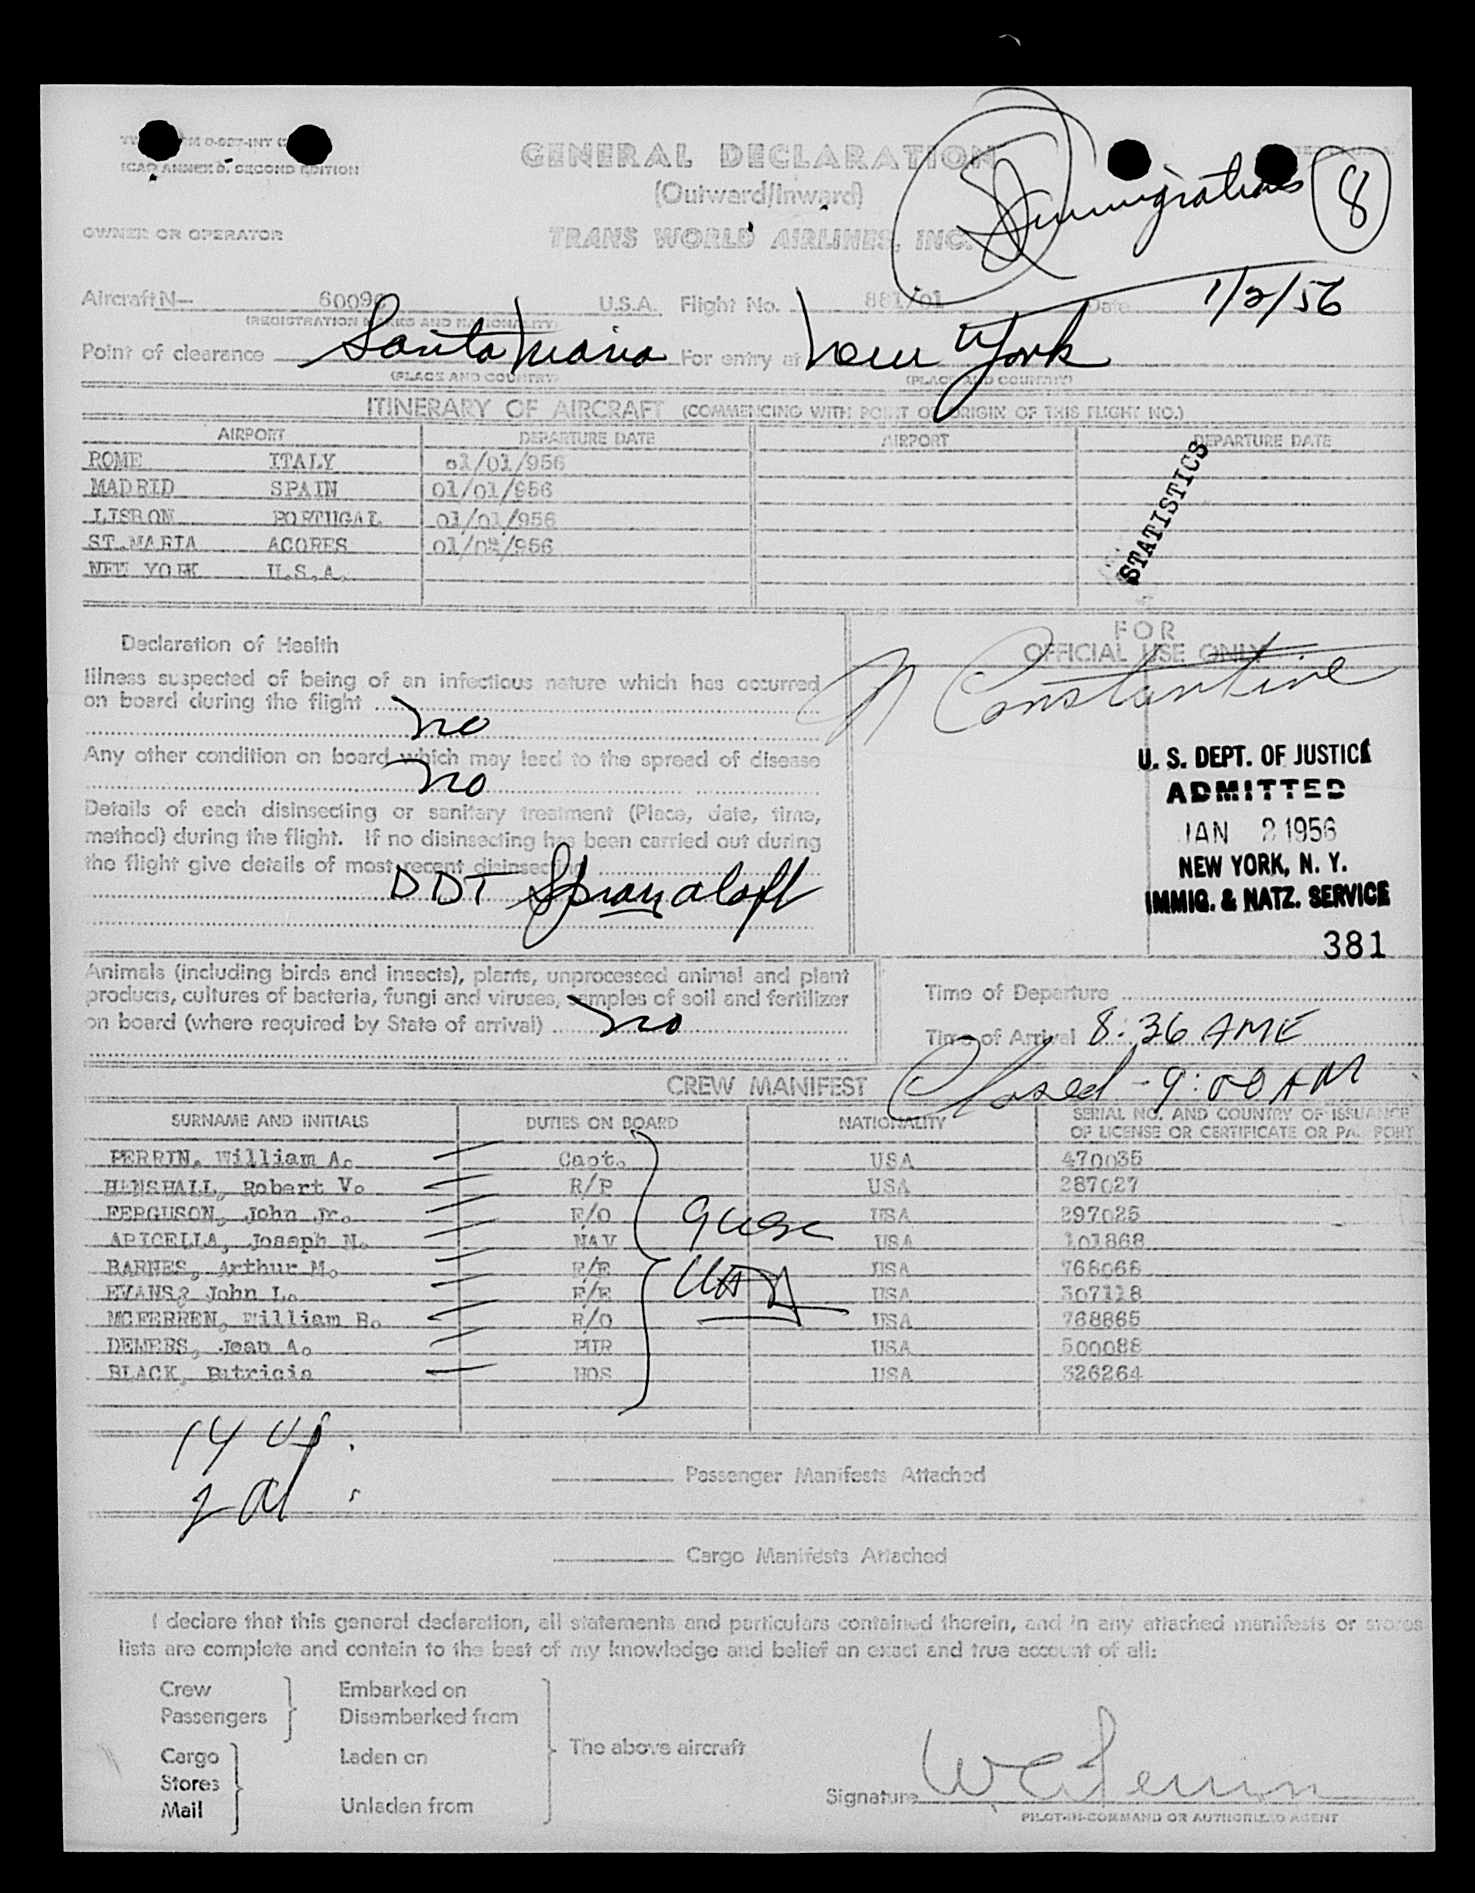 ICAO ANNEX 9, SECOND EDITION
GENERAL DECLARATION
(Outward/Inward)
Immigration 8
OWNER OR OPERATOR TRANS WORLD AIRLINES, INC.
Aircraft N— U.S.A. Flight No. 881/01 Date 1/2/56
(REGISTRATION MARKS AND NATIONALITY)
Point of clearance Santa Maria For entry at New York
(PLACE AND COUNTRY) (PLACE AND COUNTRY)
ITINERARY OF AIRCRAFT (COMMENCING WITH POINT OF ORIGIN OF THIS FLIGHT NO.)
AIRPORT DEPARTURE DATE AIRPORT DEPARTURE DATE
ROME ITALY 01/01/956
MADRID SPAIN 01/01/956
LISBON PORTUGAL 01/01/956
ST.MARIA ACORES 01/02/956
NEW YORK U.S.A.
STATISTICS
FOR
OFFICIAL USE ONLY
N Constantine
Declaration of Health
Illness suspected of being of an infectious nature which has occurred
on board during the flight
no
Any other condition on board which may lead to the spread of disease
no
Details of each disinsecting or sanitary treatment (Place, date, time,
method) during the flight. If no disinsecting has been carried out during
the flight give details of most recent disinsecting
DDT Spray aloft
U. S. DEPT. OF JUSTICE
ADMITTED
JAN 2 1956
NEW YORK, N. Y.
IMMIG. & NATZ. SERVICE
381
Animals (including birds and insects), plants, unprocessed animal and plant
products, cultures of bacteria, fungi and viruses, samples of soil and fertilizer
on board (where required by State of arrival) no
Time of Departure
Time of Arrival 8:36 AME
Closed - 9:00 AM
CREW MANIFEST
SURNAME AND INITIALS DUTIES ON BOARD NATIONALITY SERIAL NO. AND COUNTRY OF ISSUANCE
OF LICENSE OR CERTIFICATE OR PASSPORT
PERRIN, William A. Capt. USA 470035
HENSHALL, Robert V. R/P USA 287027
FERGUSON, John Jr. F/O USA 297025
APICELLA, Joseph N. NAV USA 101868
BARNES, Arthur M. F/E USA 768068
EVANS, John L. F/E USA 307118
MCFERREN, William B. R/O USA 768865
DEMEBS, Jean A. PUR USA 500088
BLACK, Patricia HOS USA 326264
14 US
2 al
Passenger Manifests Attached
Cargo Manifests Attached
I declare that this general declaration, all statements and particulars contained therein, and in any attached manifests or stores
lists are complete and contain to the best of my knowledge and belief an exact and true account of all:
Crew Embarked on
Passengers Disembarked from
The above aircraft
Cargo Laden on
Stores
Mail Unladen from
Signature W A Perrin
PILOT-IN-COMMAND OR AUTHORIZED AGENT